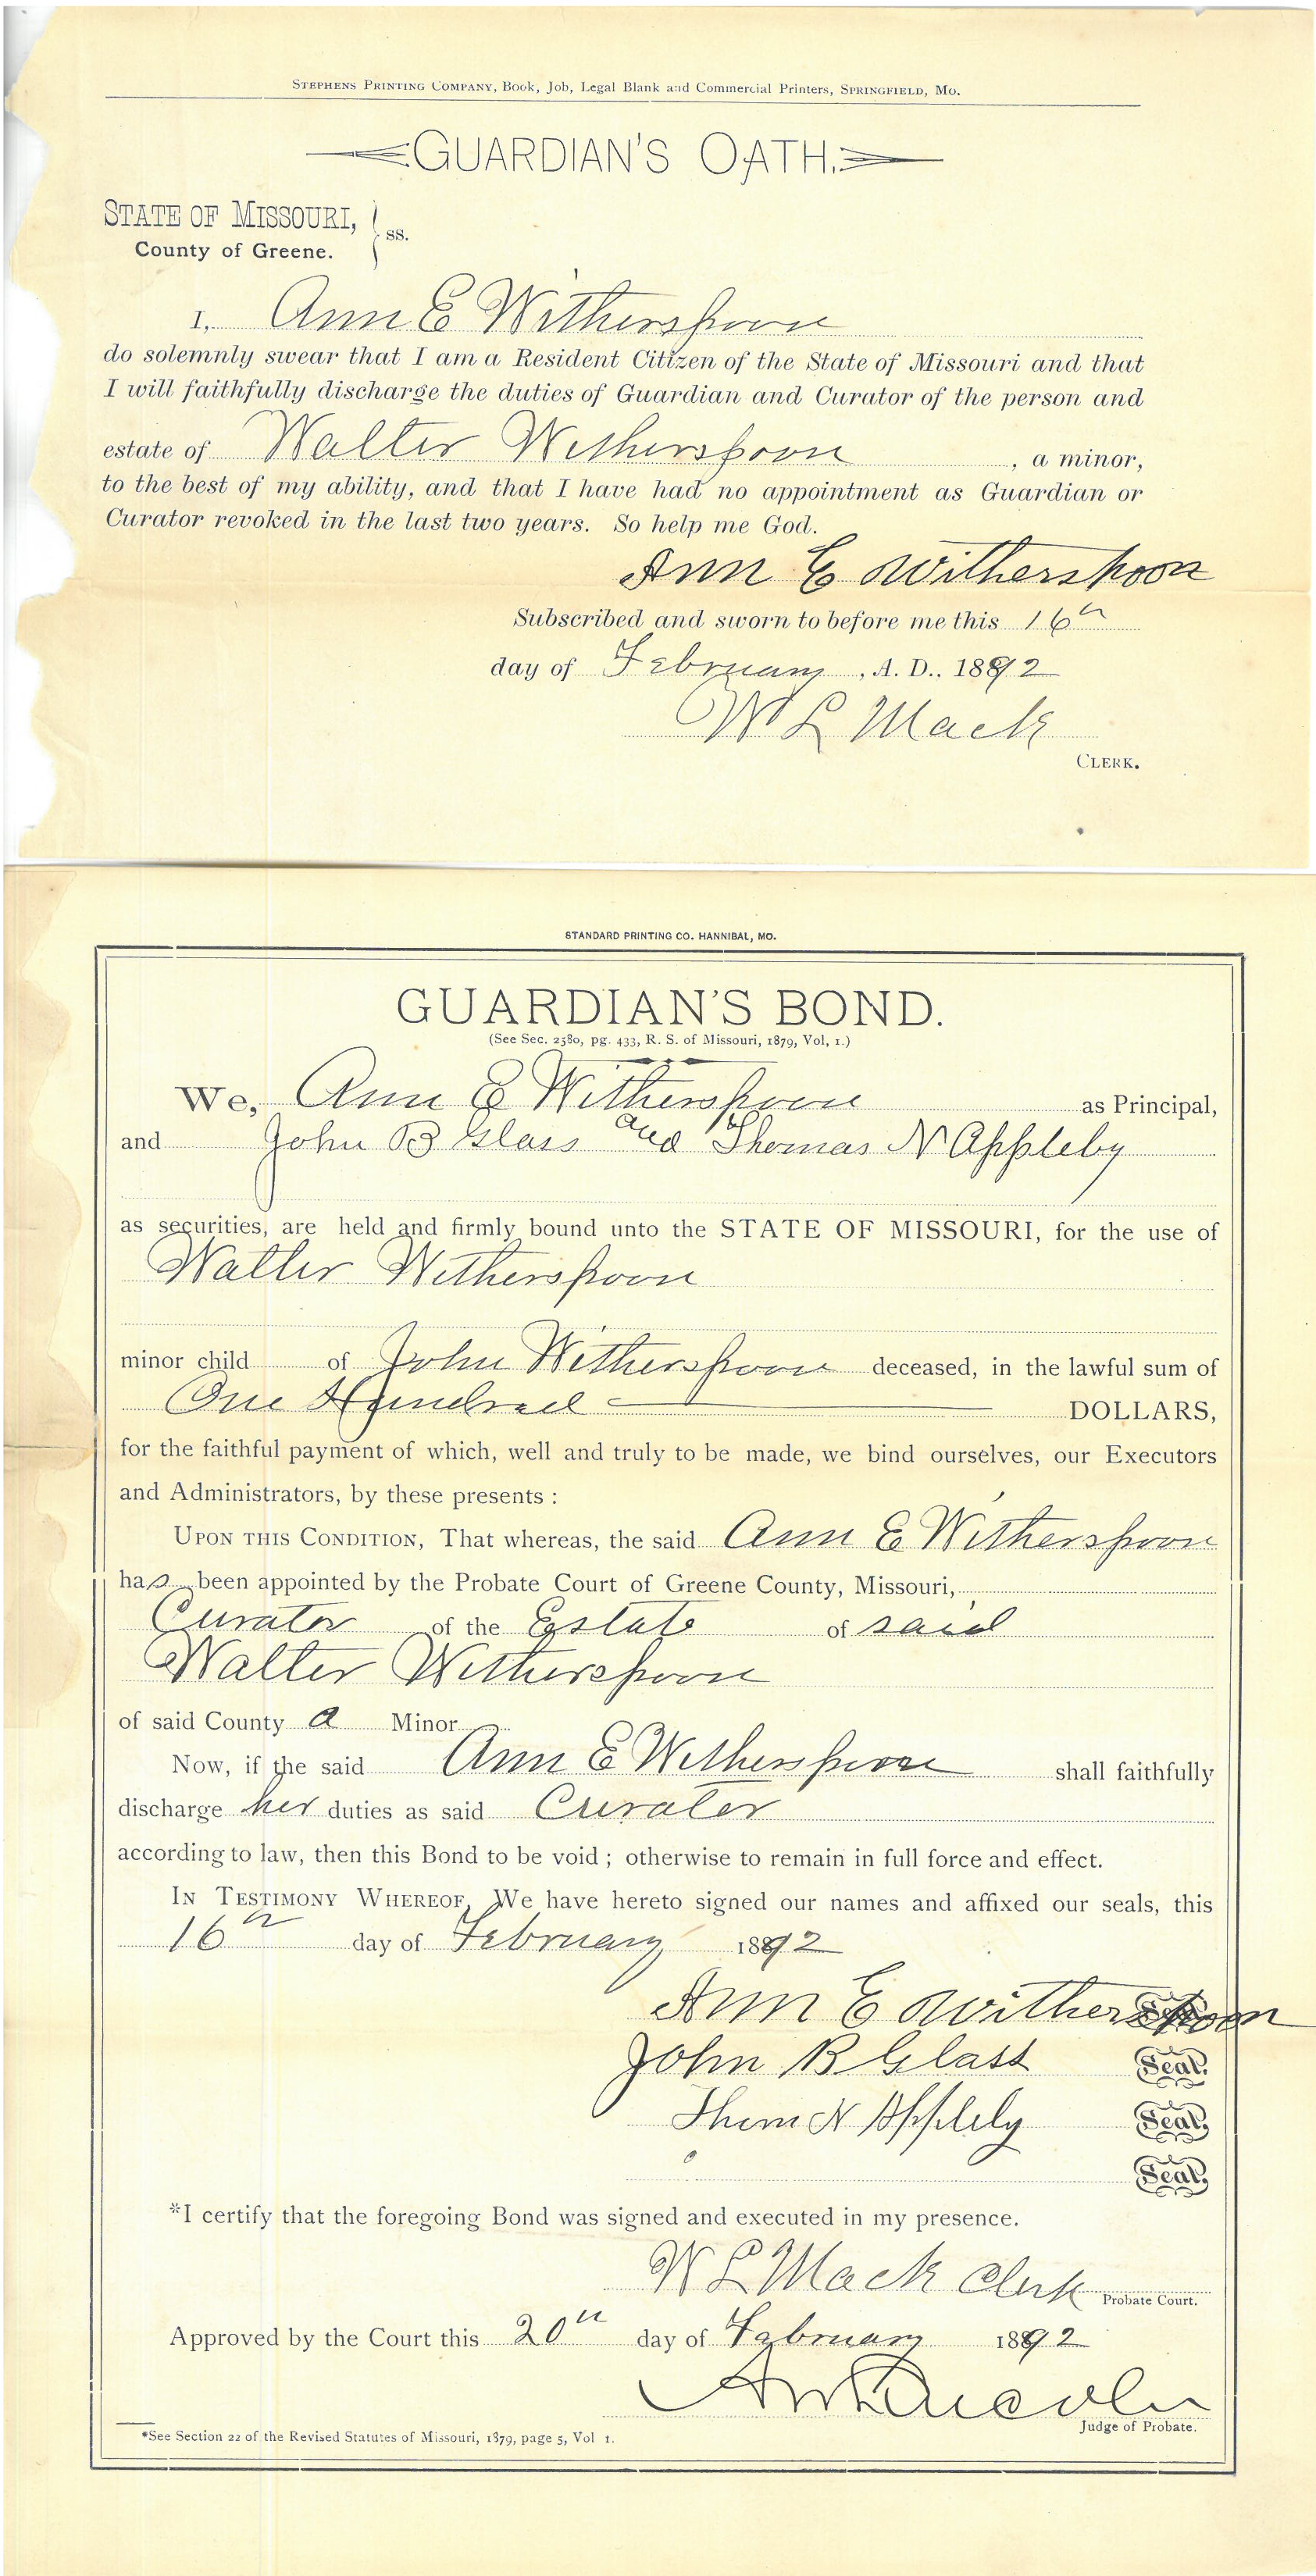 STEPHENS PRINTING COMPANY, Book, Job, Legal Blank and Commercial Printers, SPRINGFIELD, MO.
GUARDIAN'S OATH.
STATE OF MISSOURI,
County of Greene. } ss.
I, Ann E Witherspoon
do solemnly swear that I am a Resident Citizen of the State of Missouri and that
I will faithfully discharge the duties of Guardian and Curator of the person and
estate of Walter Witherspoon , a minor,
to the best of my ability, and that I have had no appointment as Guardian or
Curator revoked in the last two years. So help me God.
Ann E Witherspoon
Subscribed and sworn to before me this 16th
day of February , A. D.. 1892
W L Mack
CLERK.
STANDARD PRINTING CO. HANNIBAL, MO.
GUARDIAN'S BOND.
(See Sec. 2580, pg. 433, R. S. of Missouri, 1879, Vol, 1.)
We, Ann E Witherspoon as Principal,
and John B Glass and Thomas N Appleby
as securities, are held and firmly bound unto the STATE OF MISSOURI, for the use of
Walter Witherspoon
minor child of John Witherspoon deceased, in the lawful sum of
One Hundred DOLLARS,
for the faithful payment of which, well and truly to be made, we bind ourselves, our Executors
and Administrators, by these presents :
UPON THIS CONDITION, That whereas, the said Ann E Witherspoon
has been appointed by the Probate Court of Greene County, Missouri,
Curator of the Estate of said
Walter Witherspoon
of said County a Minor
Now, if the said Ann E Witherspoon shall faithfully
discharge her duties as said Curator
according to law, then this Bond to be void ; otherwise to remain in full force and effect.
IN TESTIMONY WHEREOF, We have hereto signed our names and affixed our seals, this
16th day of February 1892
Ann E Witherspoon Seal.
John B Glass Seal.
Thom N Appleby Seal.
Seal.
*I certify that the foregoing Bond was signed and executed in my presence.
W L Mack Clerk Probate Court.
Approved by the Court this 20th day of February 1892
A W Lincoln
Judge of Probate.
*See Section 22 of the Revised Statutes of Missouri, 1879, page 5, Vol 1.